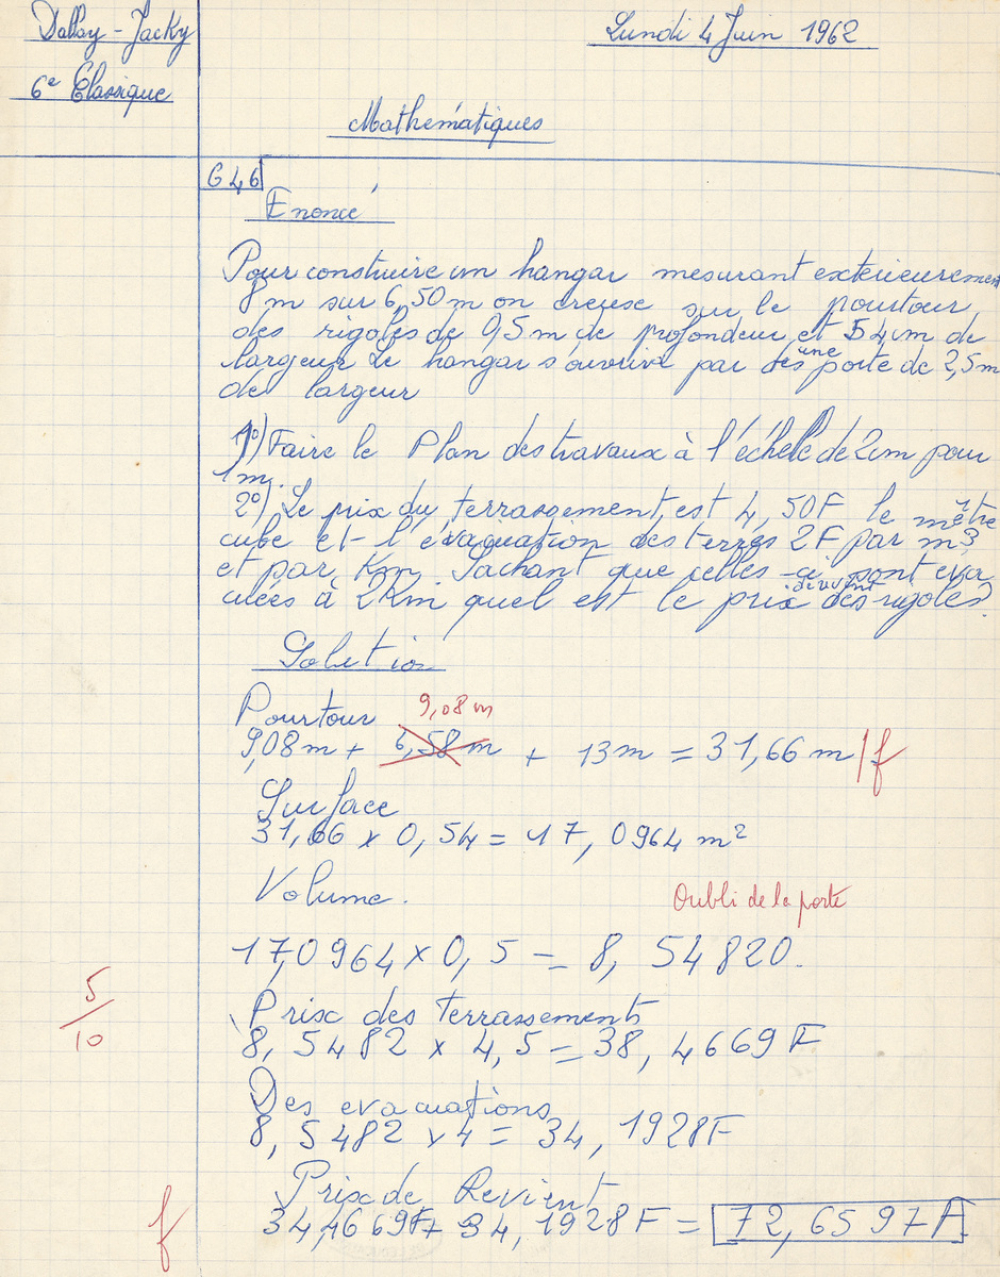 Dallay - Jacky
6e Classique
Lundi 4 Juin 1962
Mathématiques
G 46
Enoncé
Pour construire un hangar mesurant exterieurement
8m sur 6,50m on creuse sur le pourtour
des rigoles de 0,5m de profondeur et 54cm de
largeur Le hangar s'ouvrira par une porte de 2,5m
de largeur
1°) Faire le Plan des travaux à l'échelle de 2cm pour
1m.
2°) Le prix du terrassement est 4,50F le mètre
cube et l'évacuation des terres 2F par m3
et par Km. Sachant que celles-ci sont eva
cuées à 2Km quel est le prix devient des rigoles?
Solution
Pourtour 9,08 m
9,08m + 6,58m + 13m = 31,66m / f
Surface
31,66 x 0,54 = 17,0964 m²
Volume.
Oubli de la porte
17,0964 x 0,5 = 8,54820.
5
10
Prix des terrassements
8,5482 x 4,5 = 38,4669 F
Des evacuations
8,5482 x 4 = 34,1928F
Prix de Revient
34,4669F + 34,1928F = 72,6597F
f